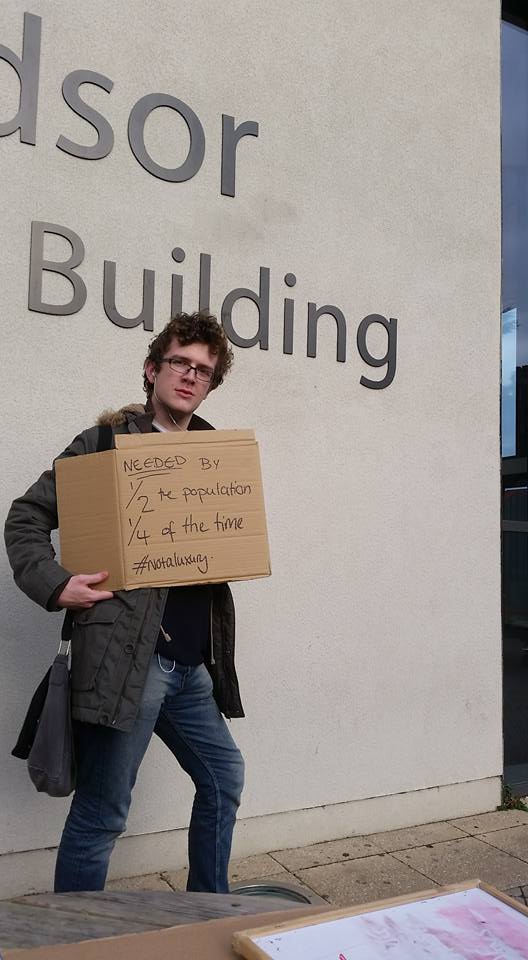 dsor
Building
NEEDED BY
1/2 the population
1/4 of the time
#Notaluxury.